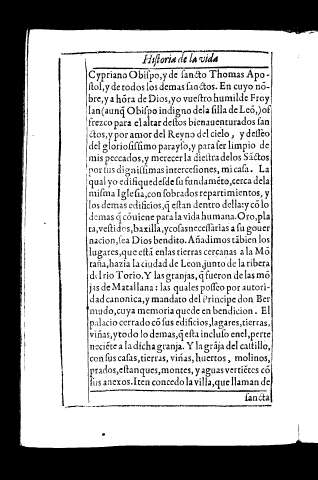 Historia de la vida
Cypriano Obispo, y de sancto Thomas Apo-
stol, y de todos los demas sanctos. En cuyo nõ-
bre, y a hõra de Dios, yo vuestro humilde Froy
lan (aunq̃ Obispo indigno dela silla de Leõ,) of
frezco para el altar destos bienauenturados san
ctos, y por amor del Reyno del cielo, y desseo
del gloriosissimo parayso, y para ser limpio de
mis peccados, y merecer la diestra delos Sãctos
por sus dignissimas intercessiones, mi casa. La
qual yo edifique desde su fundamẽto, cerca dela
misma Iglesia, con sobrados repartimientos, y
los demas edificios, q̃ estan dentro della: y cõ lo
demas q̃ cõuiene para la vida humana. Oro, pla
ta, vestidos, baxilla, y cosas necessarias a su gouer
nacion, sea Dios bendito. Añadimos tãbien los
lugares, que estã enlas tierras cercanas a la Mõ
taña, hazia la ciudad de Leon, junto de la ribera
del rio Torio. Y las granjas, q̃ fueron de las mõ
jas de Matallana: las quales posseo por autori-
dad canonica, y mandato del Principe don Ber
mudo, cuya memoria quede en bendicion. El
palacio cerrado cõ sus edificios, lagares, tierras,
viñas, y todo lo demas, q̃ esta incluso enel, perte
neciẽte a la dicha granja. Y la grãja del castillo,
con sus casas, tierras, viñas, huertos, molinos,
prados, estanques, montes, y aguas vertiẽtes cõ
sus anexos. Iten concedo la villa, que llaman de
sancta